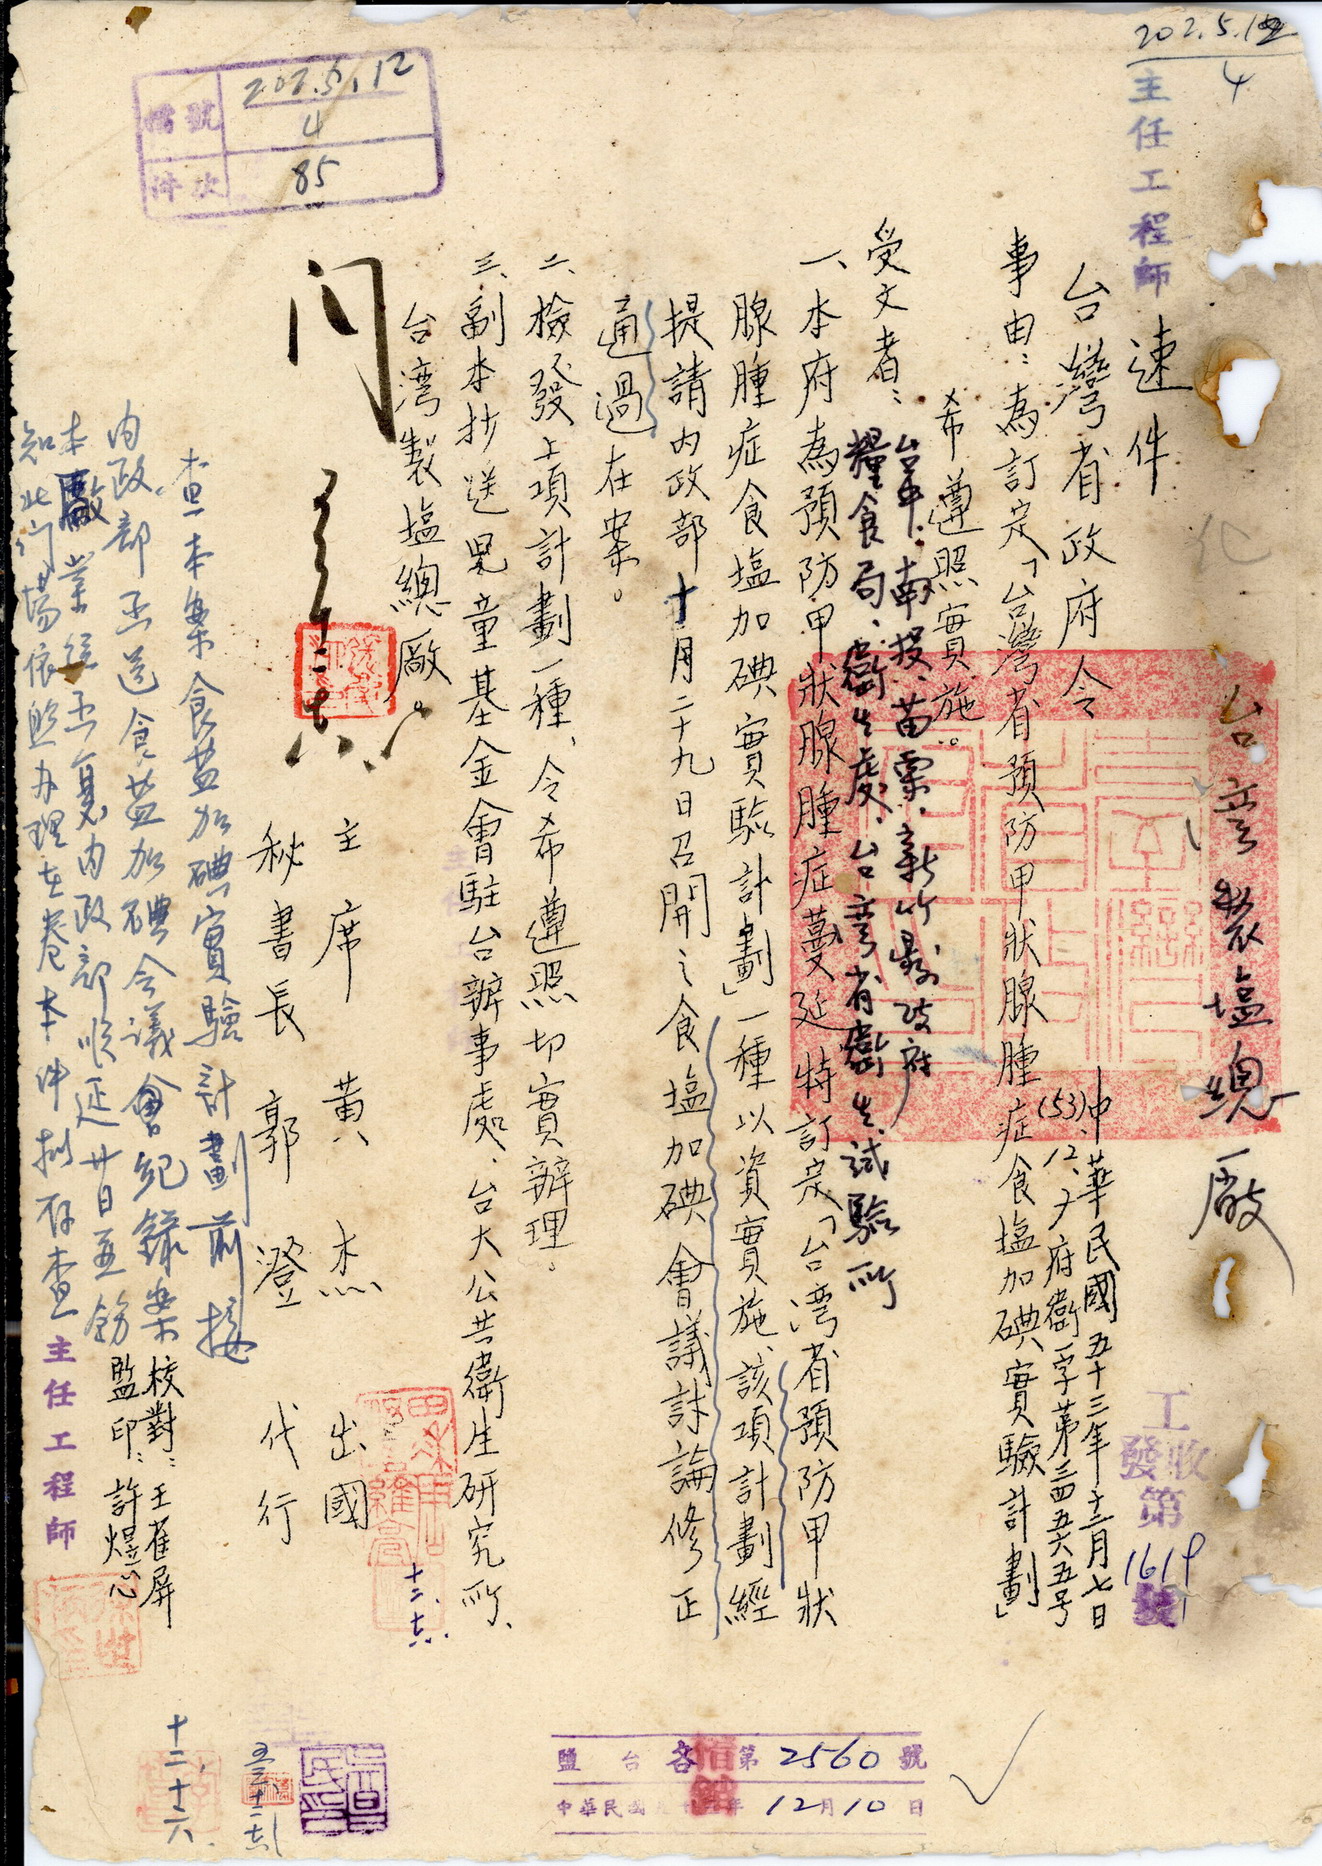 202.5.12
4
主任工程師
檔號 202.5.12
4
件次 85
台灣製塩總廠
速件
台灣省政府令
中華民國五十三年十二月七日
(53)、12、7府衛字第三四五六五号
事由：為訂定「台灣省預防甲狀腺腫症食塩加碘實驗計劃」
希遵照實施。
受文者：台中、南投、苗栗、新竹縣政府
糧食局、衛生處、台灣省衛生試驗所
一、本府為預防甲狀腺腫症蔓延特訂定「台湾省預防甲狀
腺腫症食塩加碘實驗計劃」一種以資實施、該項計劃經
提請內政部十月二十九日召開之食塩加碘會議討論修正
通過在案。
二、檢發上項計劃一種、令希遵照切實辦理。
三、副本抄送兒童基金會駐台辦事處、台大公共衛生研究所、
台湾製塩總廠。
主席 黃杰 出國
秘書長 郭澄 代行
校對：王萑屏
監印：許煜心
查本案食盐加碘實驗計劃前接
內政部函送食盐加碘會議會紀錄案
本廠業經函复內政部順延廿日並飭
知北门場依照办理在卷本件拟存查
主任工程師
工
收
發
第
1619
號
十二、十六、
鹽台各第2560號
中華民國五十三年12月10日